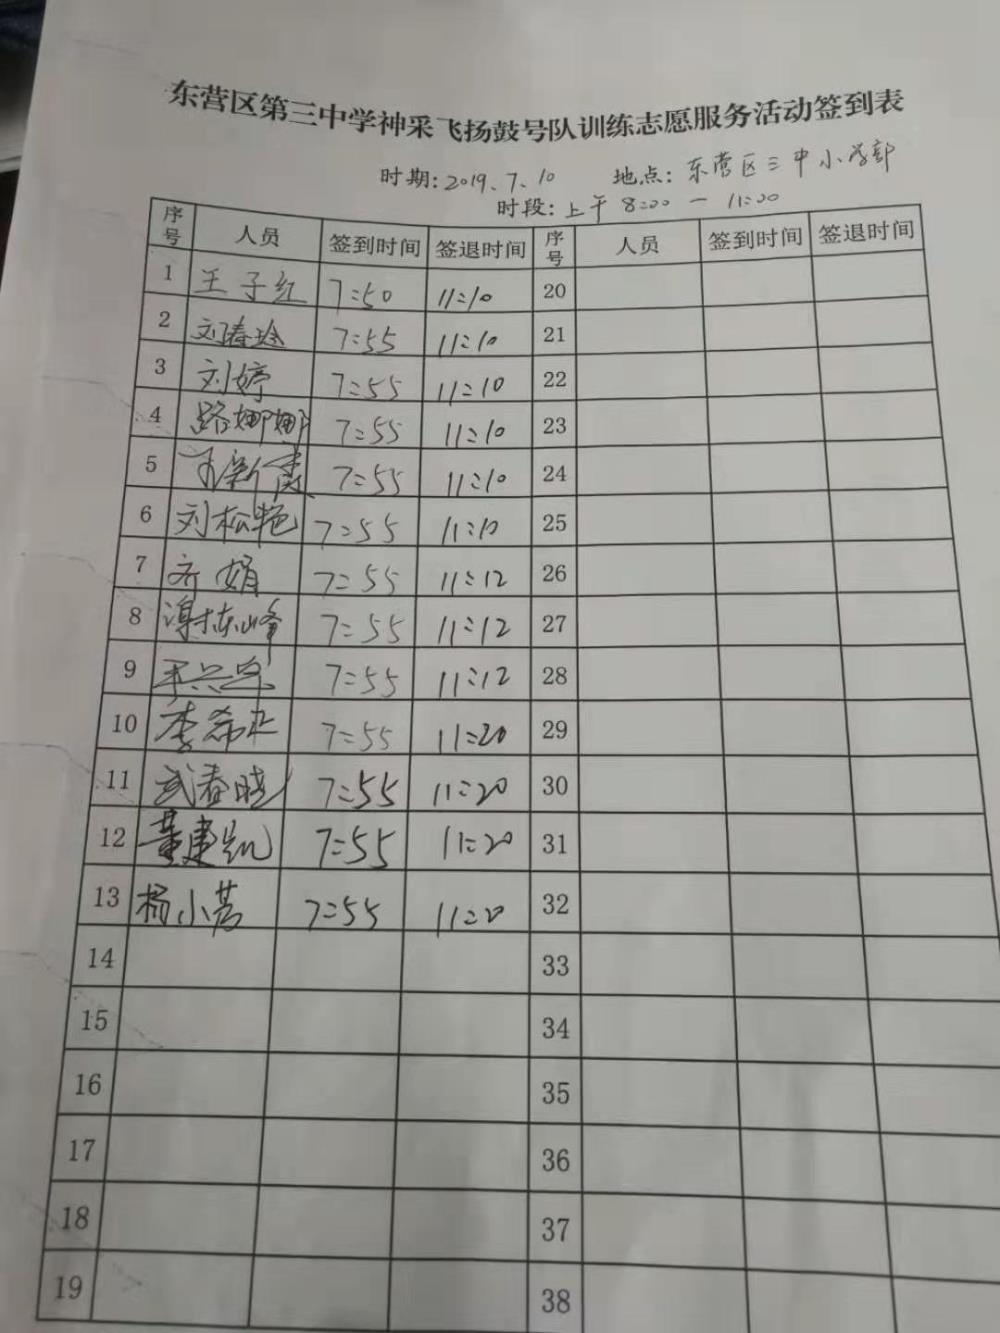 东营区第三中学神采飞扬鼓号队训练志愿服务活动签到表
时期: 2019、7、10 地点: 东营区三中小学部
时段: 上午 8:00 — 11:00
序号 人员 签到时间 签退时间 序号 人员 签到时间 签退时间
1 王子红 7:50 11:10 20
2 刘春玲 7:55 11:10 21
3 刘婷 7:55 11:10 22
4 路娜娜 7:55 11:10 23
5 7:55 11:10 24
6 刘松艳 7:55 11:10 25
7 齐娟 7:55 11:12 26
8 7:55 11:12 27
9 7:55 11:12 28
10 李希正 7:55 11:20 29
11 武春晓 7:55 11:20 30
12 董建凯 7:55 11:20 31
13 杨小营 7:55 11:20 32
14 33
15 34
16 35
17 36
18 37
19 38